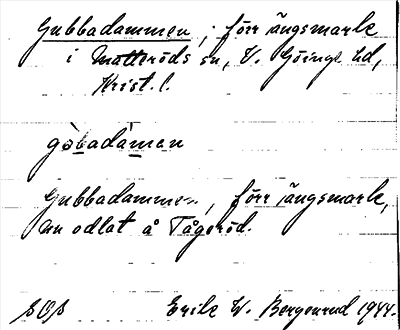 Gubbadammen, förr ängsmark
i Matteröds sn, V. Göinge hd,
Krist. l.
gòbadámen
Gubbadammen, förr ängsmark,
nu odlat å Tågeröd.
Erik W. Bergenrud 1944.